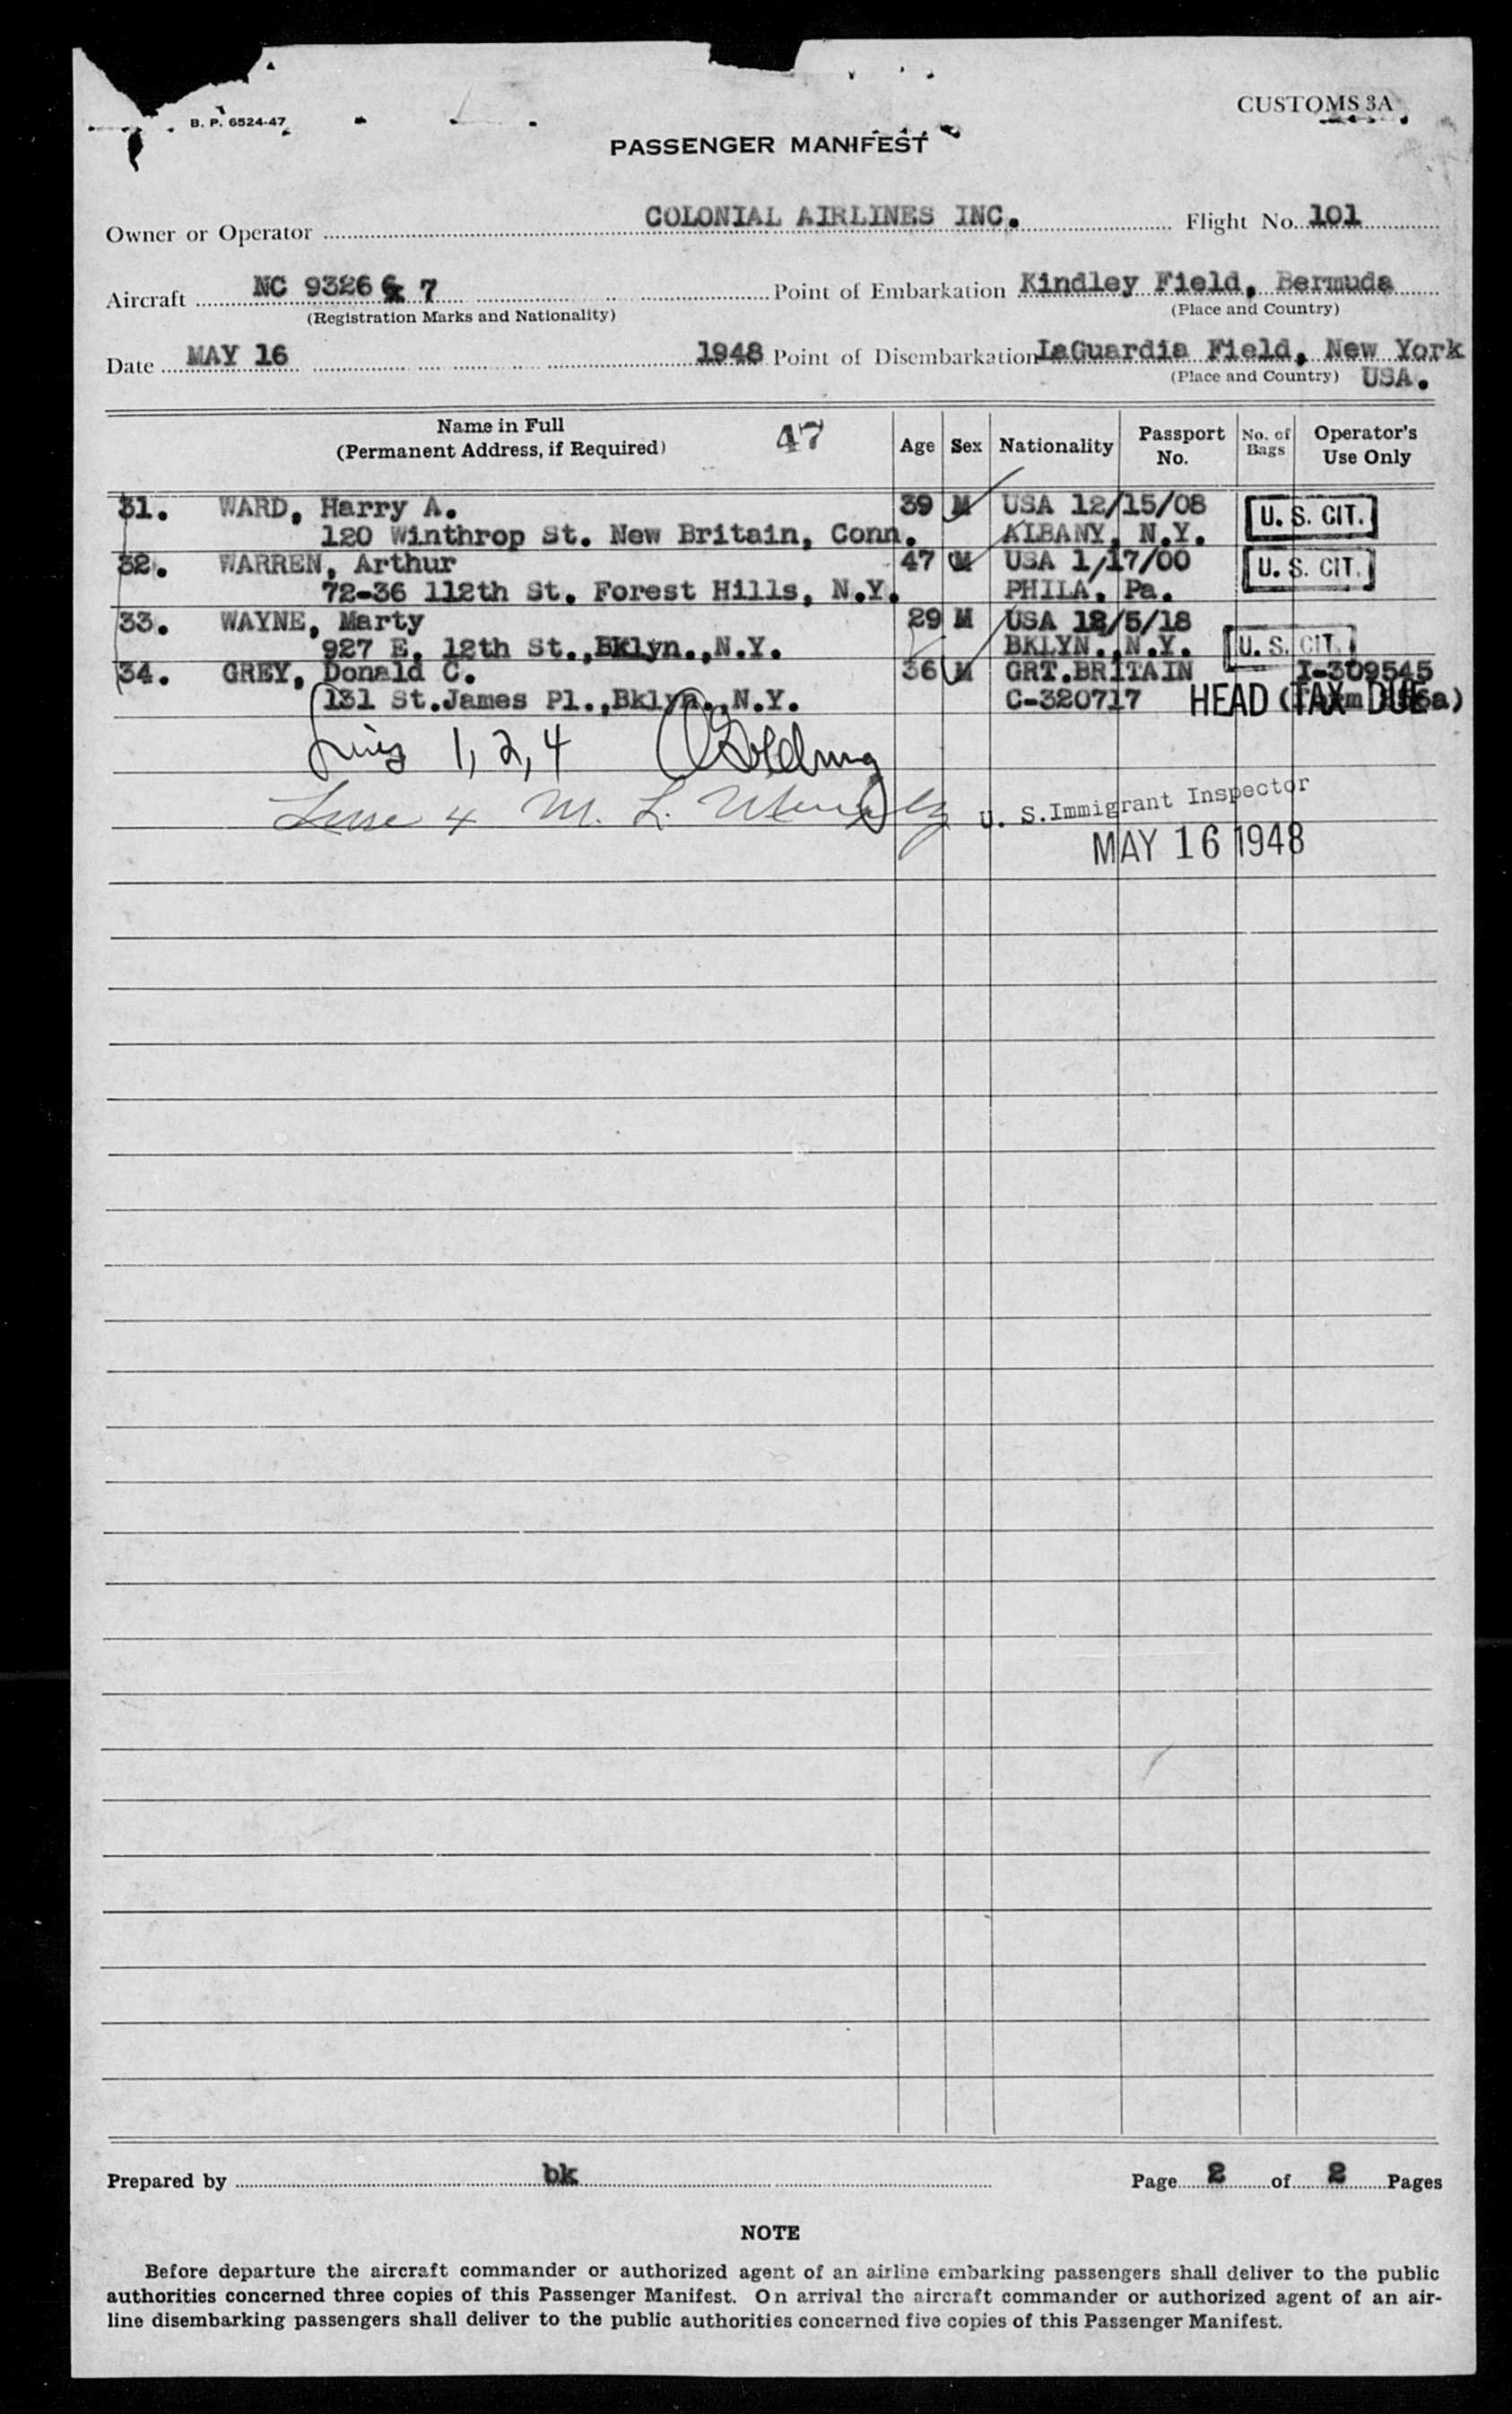 B. P. 6524-47
CUSTOMS 3A
PASSENGER MANIFEST
Owner or Operator COLONIAL AIRLINES INC. Flight No. 101
Aircraft NC 9326 7 Point of Embarkation Kindley Field, Bermuda
(Registration Marks and Nationality) (Place and Country)
Date MAY 16 1948 Point of Disembarkation LaGuardia Field, New York
(Place and Country) USA.
Name in Full
(Permanent Address, if Required) 47 Age Sex Nationality Passport No. No. of Bags Operator's Use Only
31. WARD, Harry A. 39 M USA 12/15/08 U. S. CIT.
120 Winthrop St. New Britain, Conn. ALBANY, N.Y.
32. WARREN, Arthur 47 M USA 1/17/00 U. S. CIT.
72-36 112th St. Forest Hills, N.Y. PHILA, Pa.
33. WAYNE, Marty 29 M USA 12/5/18
927 E. 12th St.,BKlyn.,N.Y. BKLYN.,N.Y. U. S. CIT.
34. GREY, Donald C. 36 M GRT.BRITAIN I-309545
131 St.James Pl.,Bklyn.,N.Y. C-320717 HEAD TAX DUE
1, 2, 4
4 M. L.
U. S.Immigrant Inspector
MAY 16 1948
Prepared by bk Page 2 of 2 Pages
NOTE
Before departure the aircraft commander or authorized agent of an airline embarking passengers shall deliver to the public
authorities concerned three copies of this Passenger Manifest. On arrival the aircraft commander or authorized agent of an air-
line disembarking passengers shall deliver to the public authorities concerned five copies of this Passenger Manifest.